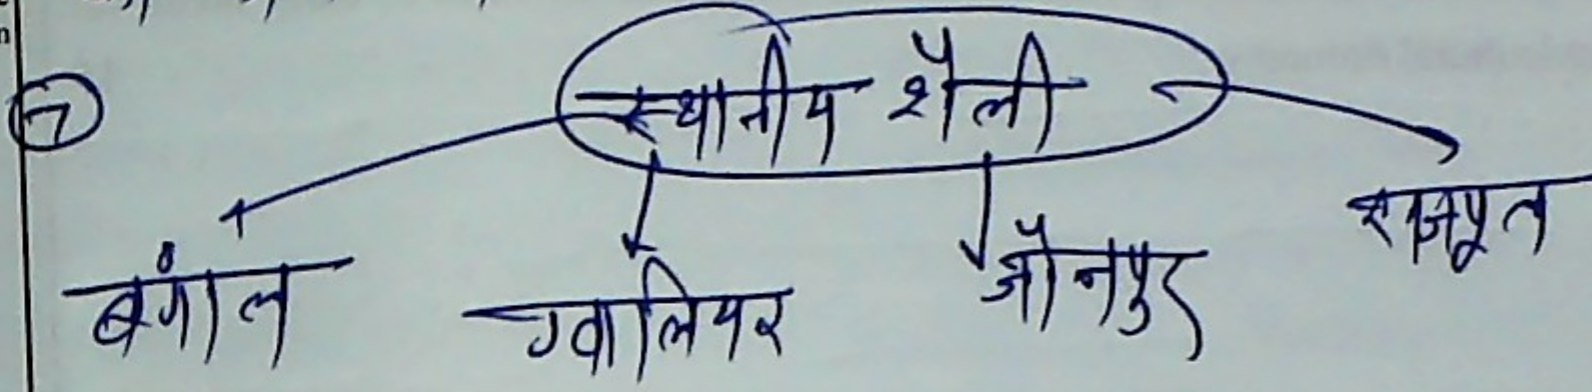 7 स्थानीय शैली
बंगाल ग्वालियर जौनपुर राजपूत